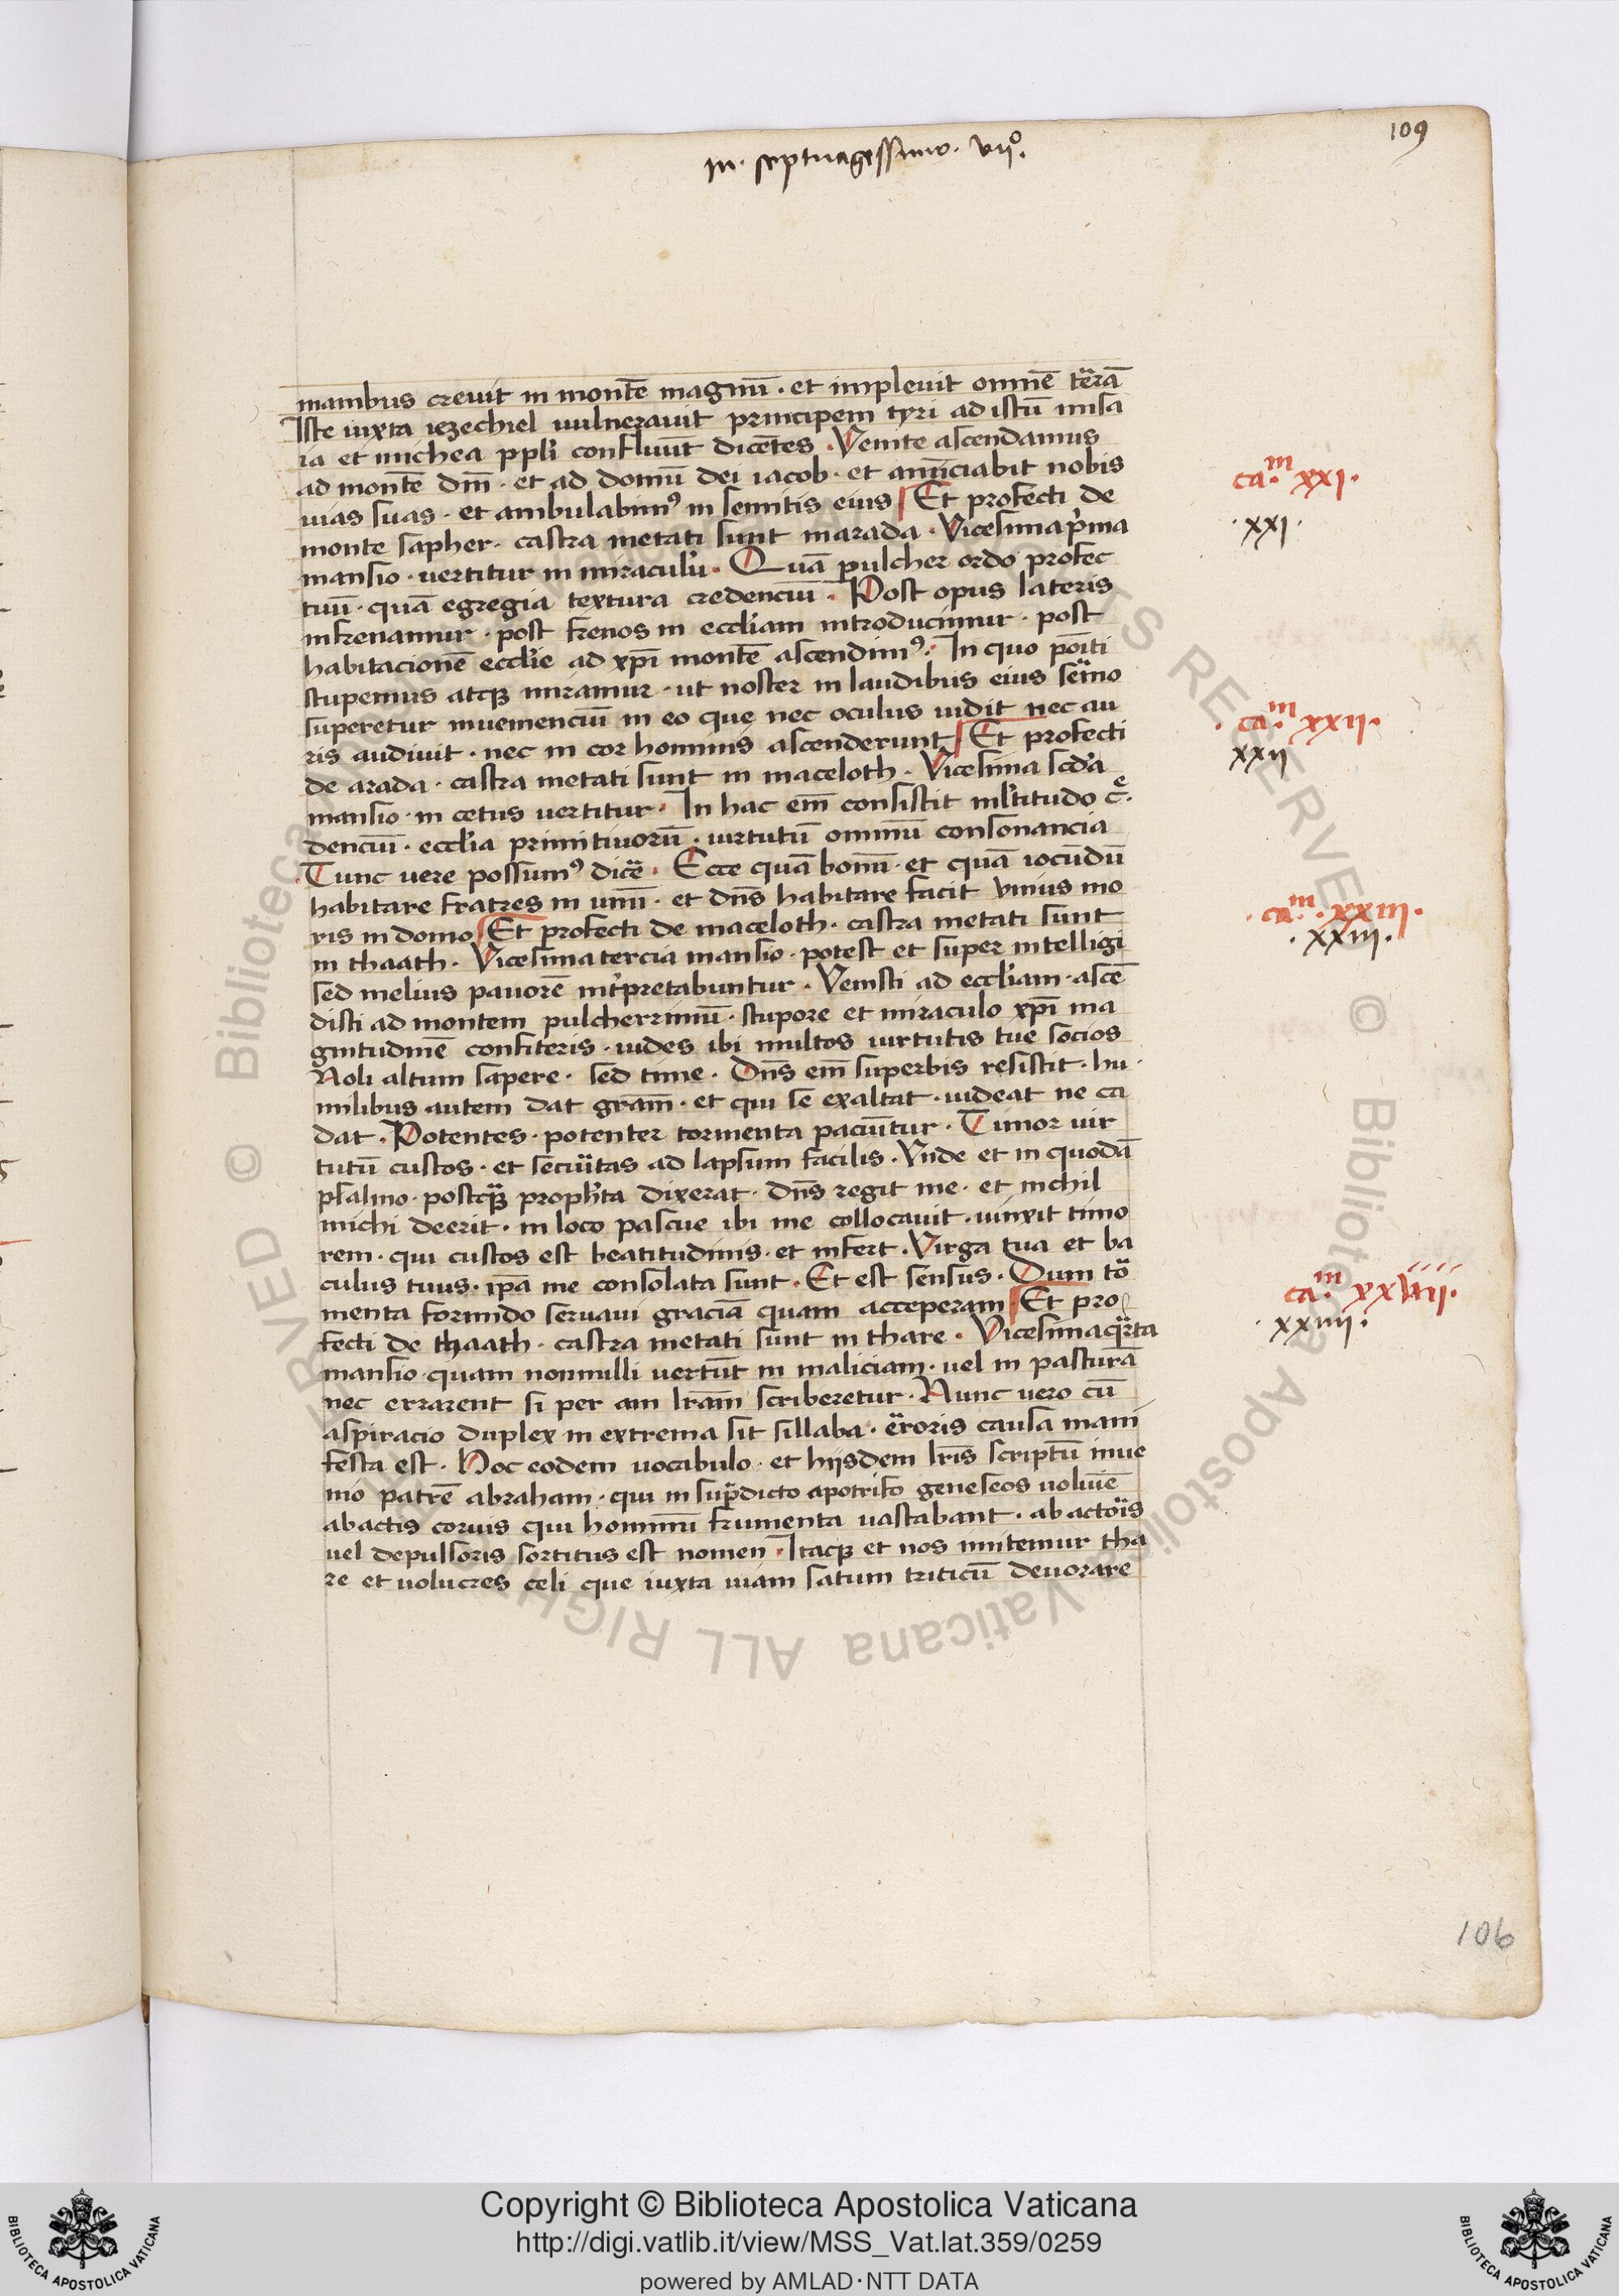 109
in. septuagessimo. vii°.
manibus crevit in montē magnū · et implevit omnē terrā
Iste iuxta iezechiel vulneravit principem tyri ad istū in isa
ia et michea ppl'i confluūt dicētes . Venite ascendamus
ad montē dm̄ · et ad domū dei iacob · et anūciabit nobis
vias suas · et ambulabim9 in semitis eius Et profecti de
monte sapher · castra metati sunt marada · Vicesima pima
mansio · vertitur in miraculū . Quā pulcher ordo profec
tuū · quā egregia textura credenciū . Post opus lateris
infrenamur · post frenos in ecclīam introducimur · post
habitacionē ecclīe ad xpī montē ascendim9 . In quo poīti
stupemus atq3 miramur · ut noster in laudibus eius sermo
superetur inuemenciū in eo que nec oculus vidit nec au
ris audivit · nec in cor hominis ascenderunt Et profecti
de arada · castra metati sunt in maceloth . Vicesima scd'a
mansio · in cetus vertitur . In hac em̄ consistit ml'titudo cͤ.
denciū · ecclīa primitivorū · virtutū omniū consonancia
Tunc vere possum9 dice . Ecce quā bonū · et quā iocūdū
habitare fratres in unū · et dn̄s habitare facit vnius mo
ris in domo Et profecti de maceloth · castra metati sunt
in thaath . Vicesima tercia mansio · potest et super intelligi
sed melius pavorē int'pretabuntur . Venisti ad ecclīam · ascē
disti ad montem pulcherrimū · stupore et miraculo xpī ma
gnitudinē confiteris · vides ibi multos virtutis tue socios
Noli altum sapere · sed time . Dn̄s em̄ superbis resistit · hu
milibus autem dat gram̄ · et qui se exaltat · videat ne ca
dat . Potentes · potenter tormenta paciūtur . Timor vir
tutū custos · et securitas ad lapsum facilis . Vnde et in quodā
psalmo · postq3 proph'ta dixerat · dn̄s regit me · et nichil
michi deerit · in loco pascue ibi me collocavit · vinxit timo
rem · qui custos est beatitudinis · et infert . Virga tua et ba
culus tuus · ipā me consolata sunt . Et est sensus . Dum tor
menta formido servavi graciā quam acceperam Et pro
fecti de thaath · castra metati sunt in thare . Vicesima qrta
mansio · quam nonnulli vertūt in maliciam · vel in pasturā
nec errarent si per ain lrām scriberetur . Nunc vero cū
aspiracio duplex in extrema sit sillaba · erroris causa mani
festa est . Hoc eodem vocabulo · et hijsdem lrīs scriptū inve
nio patrē abraham · qui in supradicto apotrifo geneseos volumē
abactis corvis qui hominū frumenta vastabant · ab actoris
vel depulsoris sortitus est nomen . Itaq3 et nos imitemur tha
re et volucres celi que iuxta viam satum triticū devorare
ca.m xxi.
·xxi·
· ca.m xxii.
xxii
· ca.m · xxiii.
· xxiii.
ca.m xxiiii.
· xxiiii.
106
Copyright © Biblioteca Apostolica Vaticana
http://digi.vatlib.it/view/MSS_Vat.lat.359/0259
powered by AMLAD·NTT DATA
BIBLIOTECA APOSTOLICA VATICANA
BIBLIOTECA APOSTOLICA VATICANA